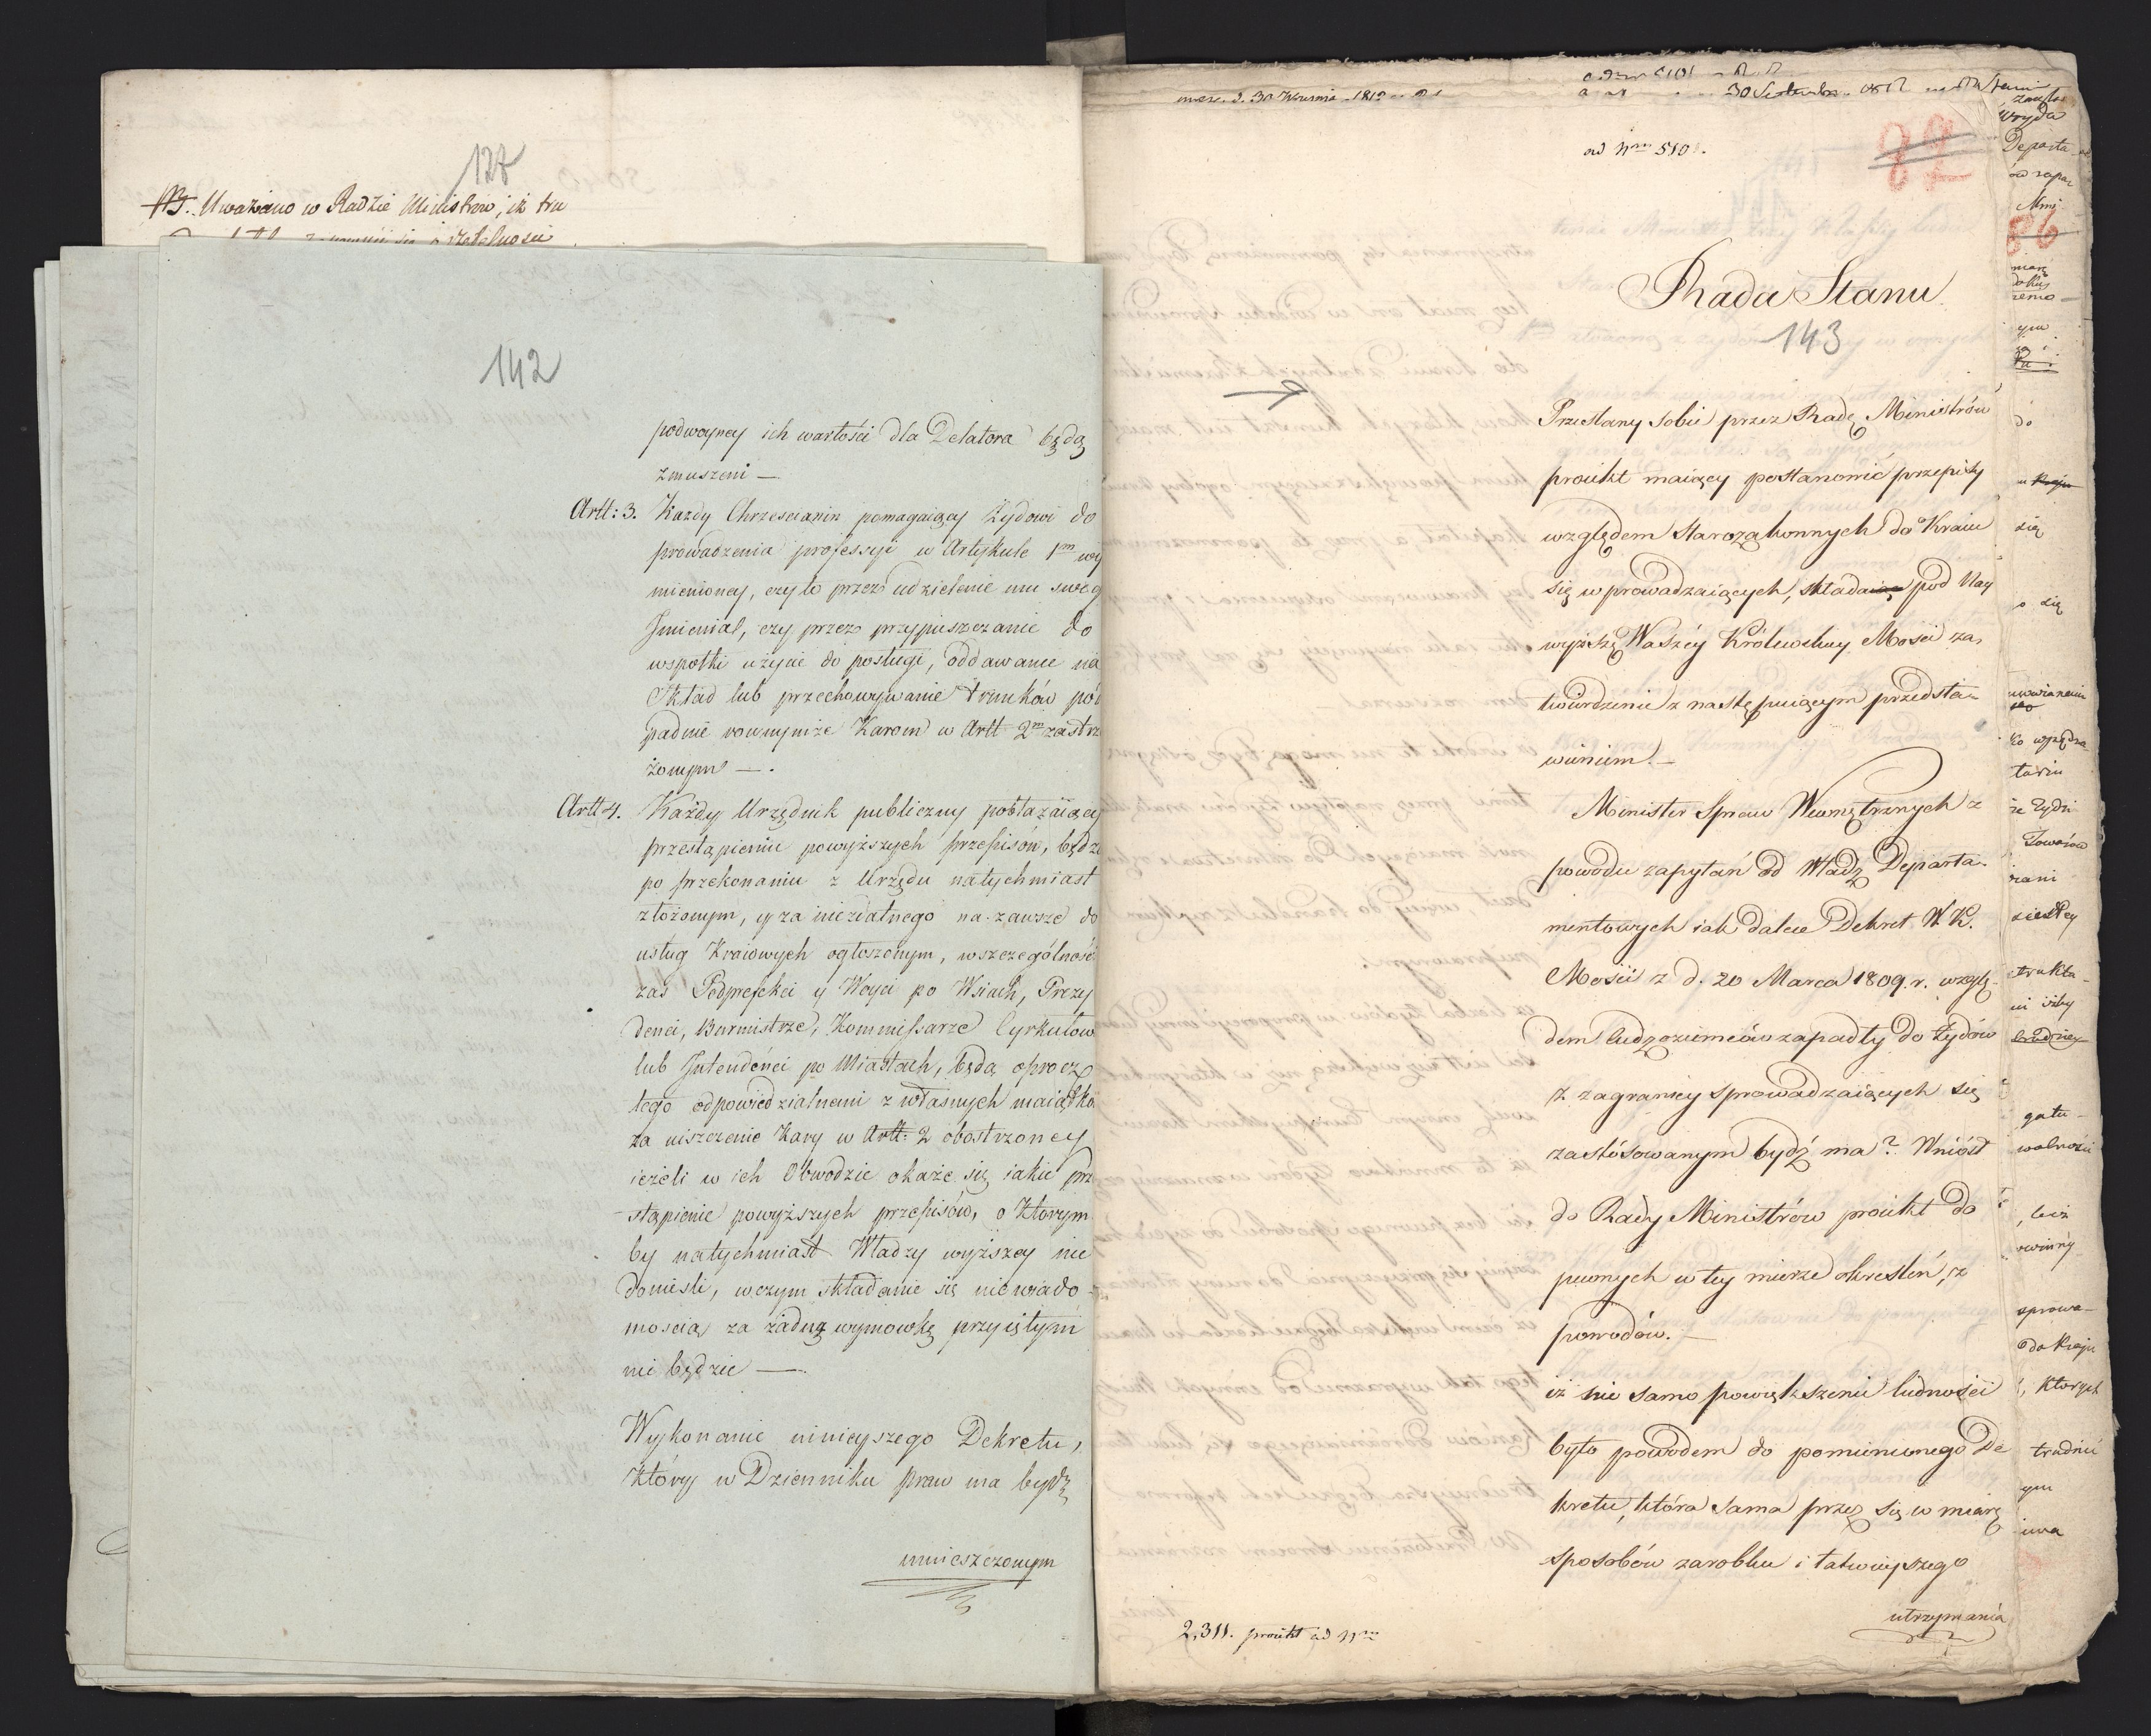 128
Uważano w Radzie Ministrów, iż tru
142
podwoyney ich wartości dla Delatora będą
zmuszeni —
Artt: 3. Kazdy Chrzescianin pomagaiący Żydowi do
prowadzenia professyi w Artykule 1m wy
mienioney, czyto przez udzielenie mu swego
Jmienia, czy przez przypuszczanie do
wspołki użycie do posługi, oddawanie na
Skład lub przechowywanie trunków pod
padnie rownymże Karom w Artt 2m zastrz
żonym —.
Artt 4. Każdy Urzędnik publiczny pobłażaiący
przestąpieniu powyższych przepisów, będzie
po przekonaniu z Urzędu natychmiast
złożonym, y za niezdatnego na zawsze do
usług Kraiowych ogłoszonym, wszczególnośc
zaś Podprefekci y Woyci po Wsiach, Prezy
denci, Burmistrze, Kommissarze Cyrkułow
lub Intendenci po Miastach, będą oprocz
tego odpowiedzialnemi z własnych maiątko
za uiszczenie Kary w Artt: 2 obostrzoney
ieżeli w ich Obwodzie okaże się iakie prze
stąpienie powyższych przepisów, o Ktorym
by natychmiast Władzy wyższey nie
donieśli, wczym składanie się niewiado-
mością za żadną wymowkę przyiętym
nie będzie —.
Wykonanie ninieyszego Dekretu,
Który w Dzienniku praw ma bydź
umieszczonym
30 Września 1812
30 Septembr. 1812
ad Nrm 510
Rada Stanu
143
Przesłany sobie przez Radę Ministrów
proiekt maiący postanowić przepisy
względem Starozakonnych do Kraiu
się wprowadzaiących, składa pod Nay
wyższe Waszéy Królewskiey Mości za,
twierdzenie z następuiącym przedsta-
wieniem. —
Minister Spraw Wewnętrznych z
powodu zapytań od Władz Departa-
mentowych iak dalece Dekret W. K.
Mości z d. 20 Marca 1809. r. wzglę-
dem Cudzoziemców zapadły do Żydów
z zagranicy sprowadzaiących się
zastósowanym bydź ma? Wniósł
do Rady Ministrów proiekt do
pewnych w tey mierze określeń, z
powodów. —
iż nie samo powiększenie ludności
było powodem do pomienionego De
kretu, która sama przez się w miarę
sposobów zarobku i łatwieyszego
utrzymania
2,311. proiekt ad Nrm
Departa-
86
do
się
o się
że Żydzi
Towarów
wolności
sprowa-
do Kraju
, Których
trudnić